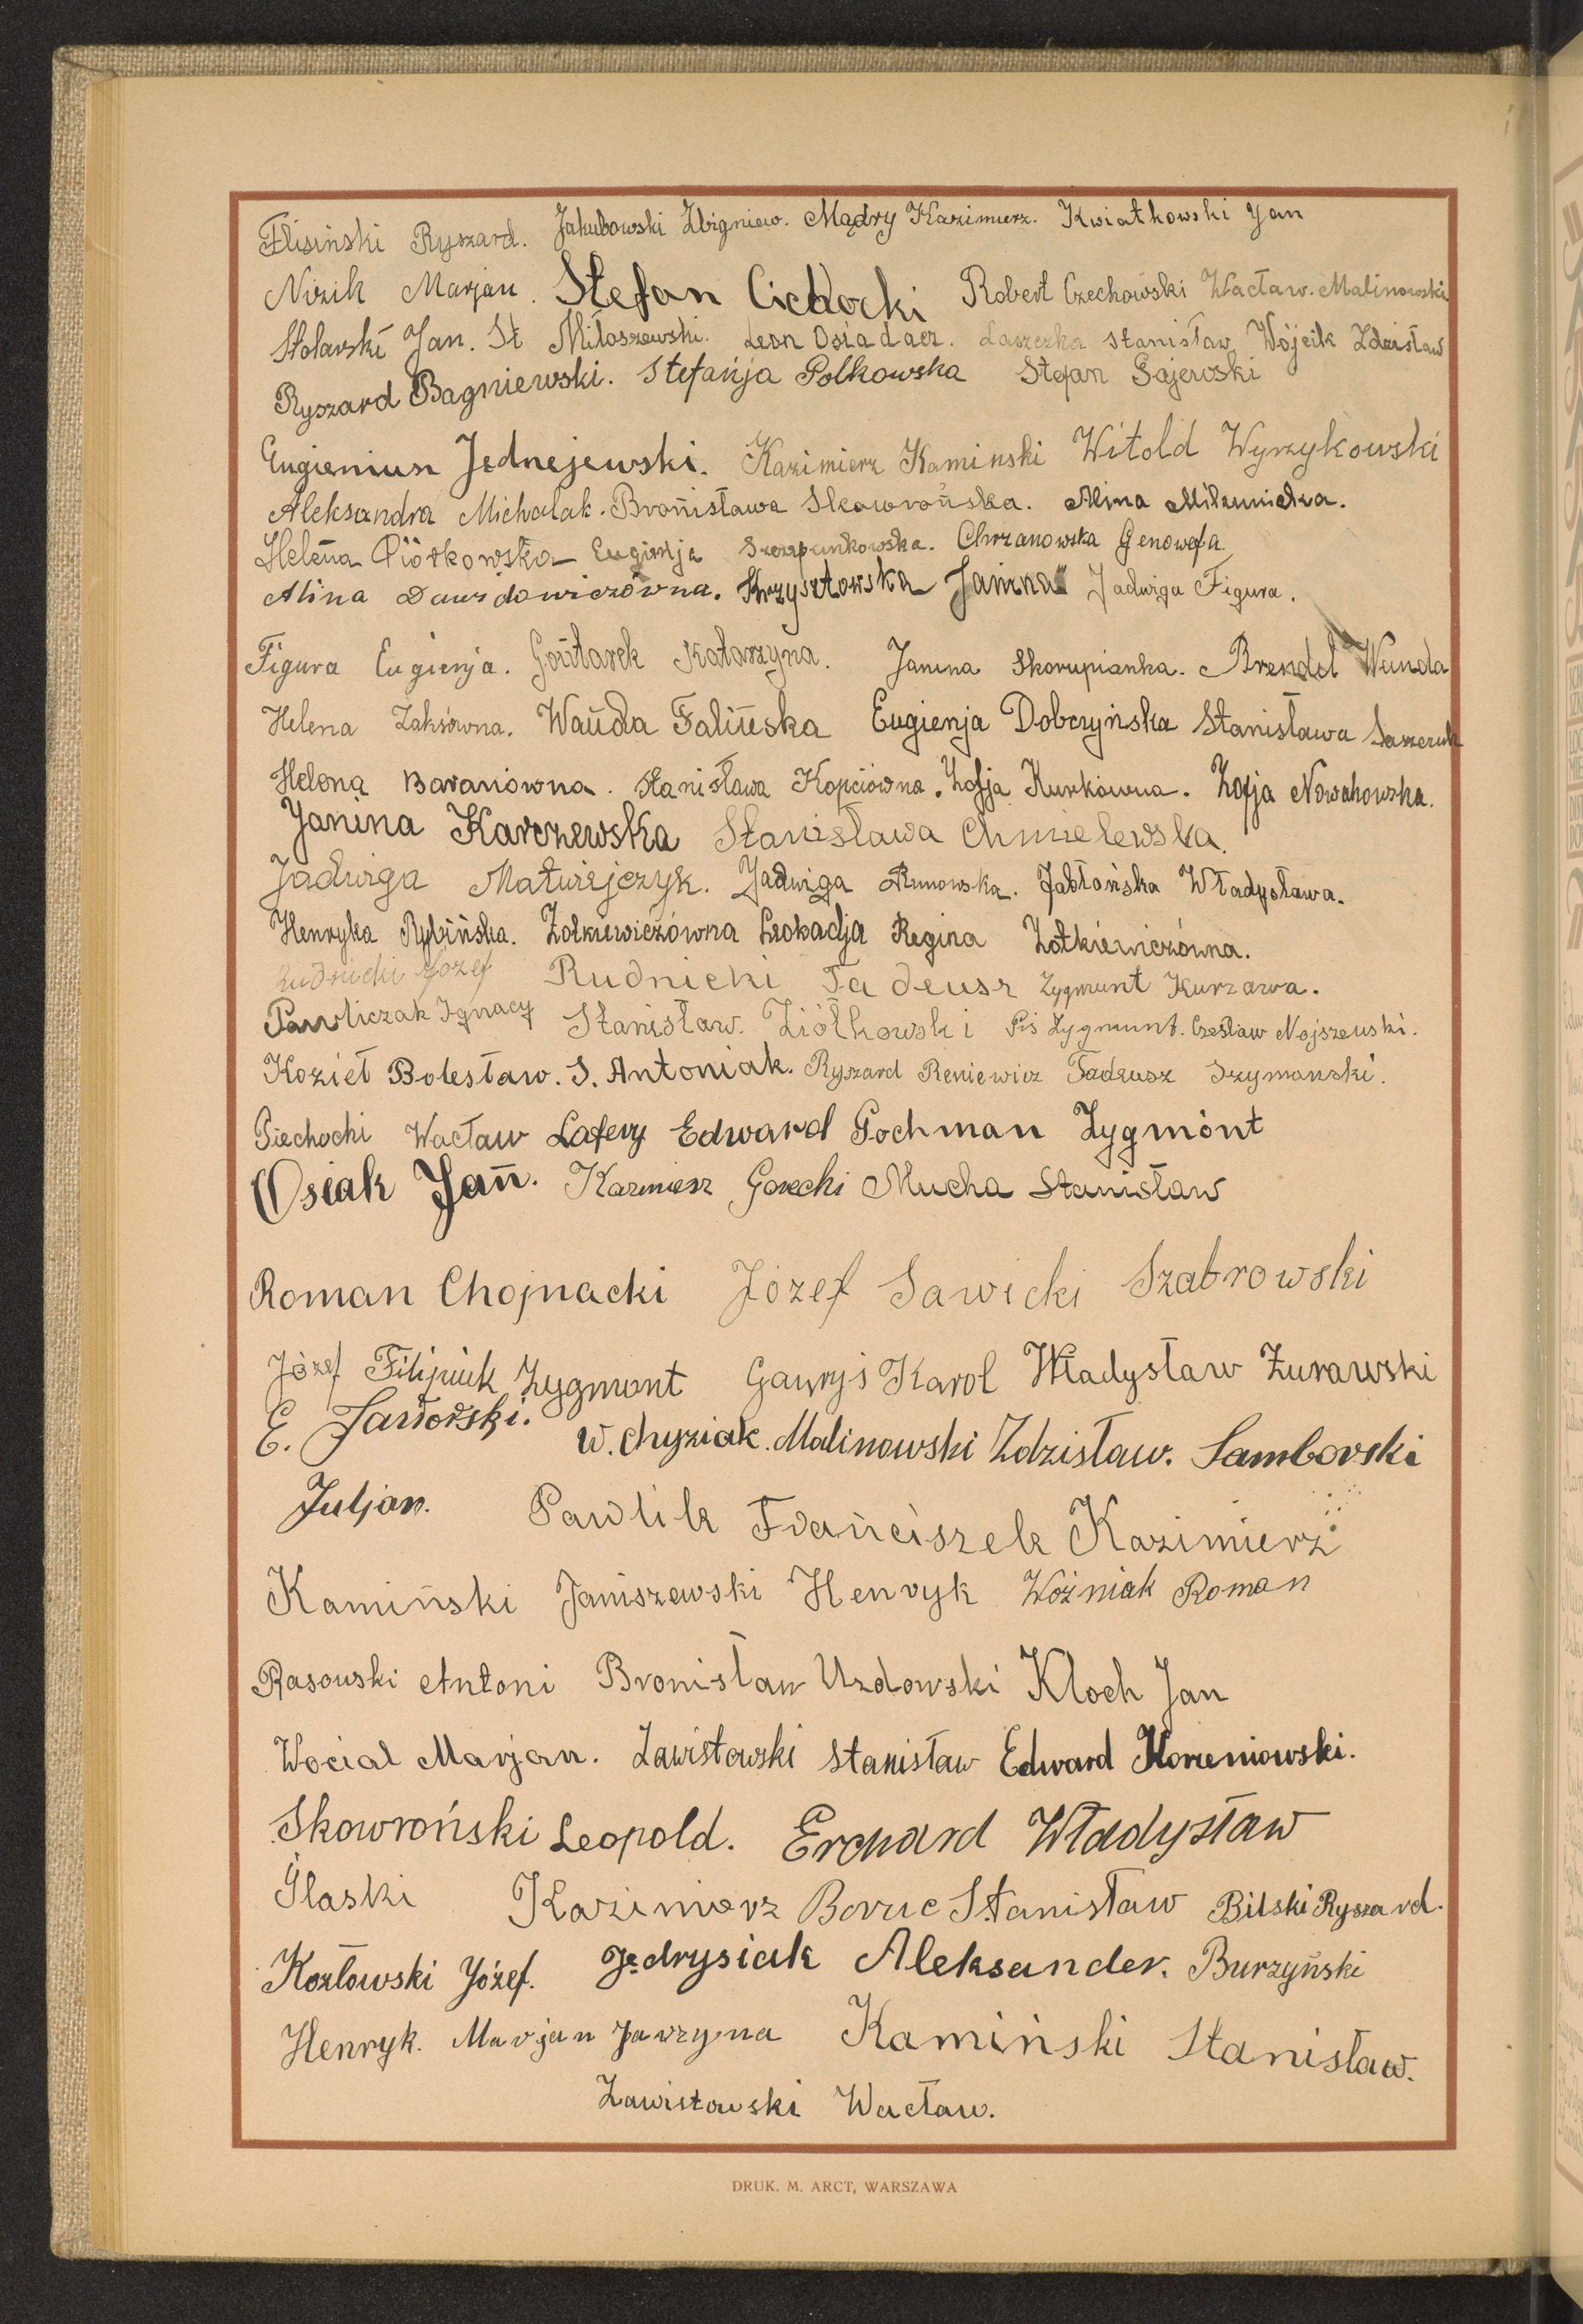 Flisiński Ryszard. Jakubowski Zbigniew. Mądry Kazimierz. Kwiatkowski Jan
Nizik Marjan. Stefan Cichocki Robert Czechowski Wacław. Malinowski
Stolarski Jan. St Miłoszewski. Leon Osiadacz. Laszczka Stanisław Wójcik Zdzisław
Ryszard Bagniewski. Stefańja Polkowska Stefan Gajewski
Eugieniusz Jednejewski. Kazimierz Kaminski Witold Wyrzykowski
Aleksandra Michalak. Brońisława Skowrońska. Alina
Heleńa Piórkowska Eugienja Szczepankowska. Chrzanowska Genowefa
Alina Dawidowiczówna. Krzysztowska Janina Jadwiga Figura.
Figura Eugienja. Katarzyna. Janina Skorupianka. Brendel Wanda
Helena Zaksówna. Wańda Falińska Eugienja Dobczyńska Stanisława
Helena Baranówna. Stanisława Kopciówna. Zofja Kurkówna. Zofja Nowakowska.
Janina Karczewska Stanisława Chmielewska.
Jadwiga Matwiejczyk. Jadwiga Runowska. Jabłońska Władysława.
Henryka Rybińska. Żołkiewiczówna Leokadja Regina Żołkiewiczówna.
Rudnicki Józef Rudnicki Tadeusz Zygmunt Kurzawa.
Pawliczak Ignacy Stanisław. Ziółkowski Piś Zygmunt. Czesław Nojszewski.
Kozieł Bolesław. S. Antoniak. Ryszard Reniewicz Tadeusz Szymanski.
Piechocki Wacław Lafery Edward Pochman Zygmónt
Osiak Jań. Kazimierz Gorecki Mucha Stanisław
Roman Chojnacki Józef Sawicki Szabrowski
Józef Filipiuk Zygmont Gawryś Karol Władysław Żurawski
E. Jaworski. W. Chyziak. Malinowski Zdzisław. Samborski
Juljan. Pawlik Frańciszek Kazimierz
Kamiński Janiszewski Henryk Woźniak Roman
Rasowski Antoni Bronisław Uzdowski Kloch Jan
Wociał Marjan. Zawistowski Stanisław Edward Korzeniowski.
Skowroński Leopold. Erchard Władysław
Ślaski Kazimierz Boruc Stanisław Bilski Ryszard.
Kozłowski Józef. Jędrysiak Aleksander. Burzyński
Henryk. Marjan Jarzyna Kamiński Stanisław.
Zawistowski Wacław.
DRUK. M. ARCT, WARSZAWA